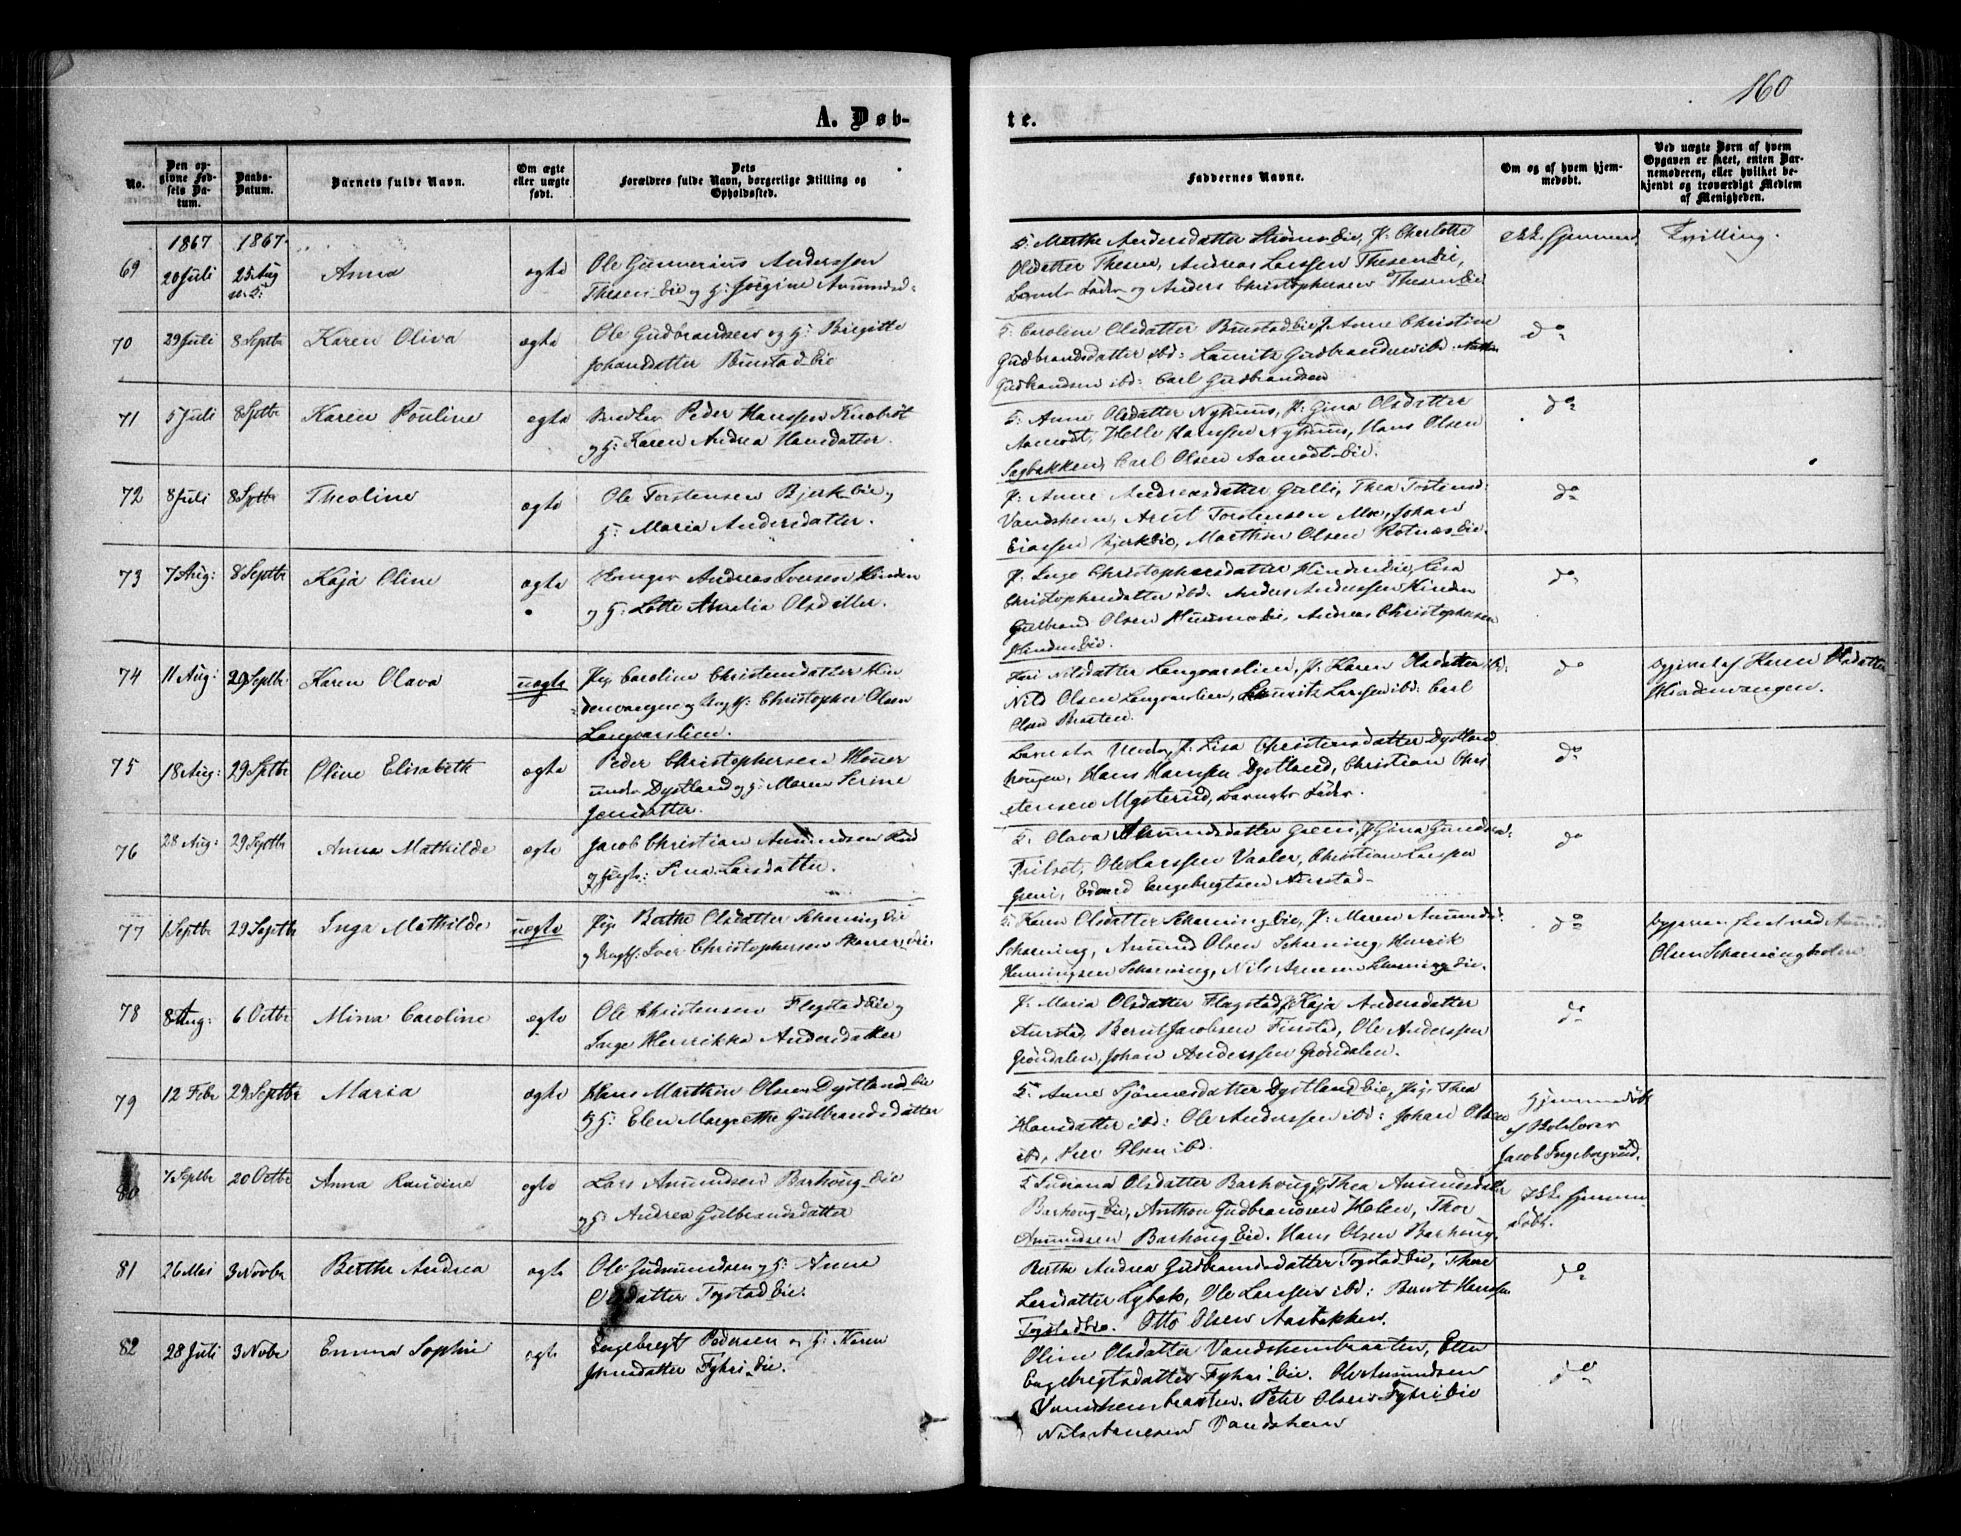 160
A. Døb-
te.
No.
Den op-
givne Fød-
sels Da-
tum.
Daabs-
Datum.
Barnets fulde Navn.
Om ægte
eller uægte
født.
Dets
Forældres fulde Navn, borgerlige Stilling og
Opholdssted.
Faddernes Navne.
Om og af hvem hjem-
medøbt.
Ved uægte Børn af hvem
Opgaven er skeet, enten Bar-
nemoderen, eller hvilket be-
kjendt og troværdigt Medlem
af Menigheden.
1867 1867
69 20 Juli 25 Aug Anna ægte
Ole Gunnerius Anderssen
Thesen Eie og H: Jørgine Amunds-
G: Marthe Andersdatter Strøms Eie, P: Charlotte
Olsdatter Thesen, Andreas Larssen Thesen Eie,
Barnets Fader og Anders Christophersen Thesen Eie
Tvilling.
70 29 Juli 8 Septbr Karen Oliva ægte
Ole Gudbrandsen og H: Birgitte
Johansdatter Brustad Eie
G: Caroline Olsdatter Brustad Eie, P: Anne Christine
Gudbrandsdatter ibd: Lauritz Gudbrandsen ibd:
Gudbrandsen ibd: Carl Gudbrandsen
do
71 5 Juli 8 Septbr Karen Pouline ægte
Peder Hanssen
og H: Karen Andrea Hansdatter.
G: Anne Olsdatter Nyhuus, P: Gina Olsdatter
Aamodt, Helle Hanssen Nyhuus, Hans Olsen
Sagbakken, Carl Olsen Aamodt Eie.
do
72 8 Juli 8 Septbr Theoline ægte
Ole Torstensen Bjerk Eie og
H: Maria Andersdatter.
P: Anne Andreasdatter Galli, Thea Torstensd:
Vandshem, Arnt Torstensen Moe, Johan
Bjerk Eie, Marthin Olsen Rotnæs Eie.
do
73 7 Aug: 8 Septbr Kaja Oline ægte
Andreas Iversen Hinden
og H: Lotte Amalia Olsdatter.
P: Inge Christophersdatter Hinden Eie, Lisa
Christophersdatter ibd. Anders Anderssen Hinden
Gulbrand Olsen Eie, Andreas Christophersen
Hinden Eie
do
74 11 Aug: 29 Septbr Karen Olava uægte
Pige Caroline Christensdatter Hin
denvangen og Ungk: Christopher Olsen
Langvarslien.
Nilsdatter Langvarslien, P: Karen Olsdatter ibd:
Nils Olsen Langvarslien, Lauritz Larssen ibd: Carl
Olsen Braaten.
do
Opgivet af Karen Olsdatter
Hindenvangen.
75 18 Aug: 29 Septbr Oline Elisabeth ægte
Peder Christophersen
under Dystland og H: Maren Serine
Jensdatter.
Barnets Moder, P: Lisa Christensdatter Dystland
Hans Hanssen Dystland, Christian Chri
stensen Mysterud, Barnets Fader.
do
76 28 Aug: 29 Septbr Anna Mathilde ægte
Jacob Christian Amundsen Rud
Sina Larsdatter.
G: Olava Amundsdatter Greni, P: Gina
Ole Larssen Vaaler, Christian Larssen
Greni, Edvard Engebregtsen
do
77 1 Septbr 29 Septbr Inga Mathilde uægte
Pige Berthe Olsdatter Scharning Eie
og Ungk: Iver Christophersen
G: Karen Olsdatter Scharning Eie, P: Maren Amunds
Scharning, Amund Olsen Scharning, Henrik
Henningsen Scharning, Nils
do
Olsen Scharning
78 8 Aug: 6 Octbr Mina Caroline ægte
Ole Christensen Flagstad Eie og
Inge Henrikka Andersdatter
P: Maria Olsdatter Flagstad, P: Kaja Andersdatter
Aurstad, Bernt Jacobsen Finstad, Ole Anderssen
Grøndalen, Johan Anderssen Grøndalen.
do
79 12 Febr 29 Septbr Maria ægte
Hans Marthin Olsen Dystland Eie
og H: Elen Margrethe Gulbrandsdatter
G: Anne Dystland Eie, Pige Thea
Hansdatter ibd: Ole Anderssen ibd: Johan Olsen
ibd, Peer Olsen ibd.
Hjemmedøbt
af
Jacob Ingeborgrud.
80 7 Septbr 20 Octbr Anna Randine ægte
Lars Amundsen Barhoug Eie
og H: Andrea Gulbrandsdatter
G: Juliana Olsdatter Barhoug, P: Thea Amundsdatter
Barhoug Eie, Anthon Gudbrandsen Holen, Thor
Amundsen Barhoug Eie. Hans Olsen Barhoug.
Ikke hjemme
døbt.
81 26 Mai 3 Novbr Berthe Andrea ægte
Ole Gudmundsen og H: Anne
Olsdatter Togstad Eie.
Berthe Andrea Gudbrandsdatter Togstad Eie, Thore
Larsdatter Lybæk, Ole Larssen ibd: Bernt Hanssen
Togstad Eie. Otto Olsen Aasbakken.
do
82 28 Juli 3 Novbr Emma Sophie ægte
Engebregt Pedersen og H: Karen
Jonsdatter Fyhri Eie.
Oline Olsdatter Vandshembraaten, Ellen
Engebregtsdatter Fyhri Eie. Ole Amundsen
Vandshembraaten. Peter Olsen Fyhri Eie
Nils Arnesen Vandshem
do